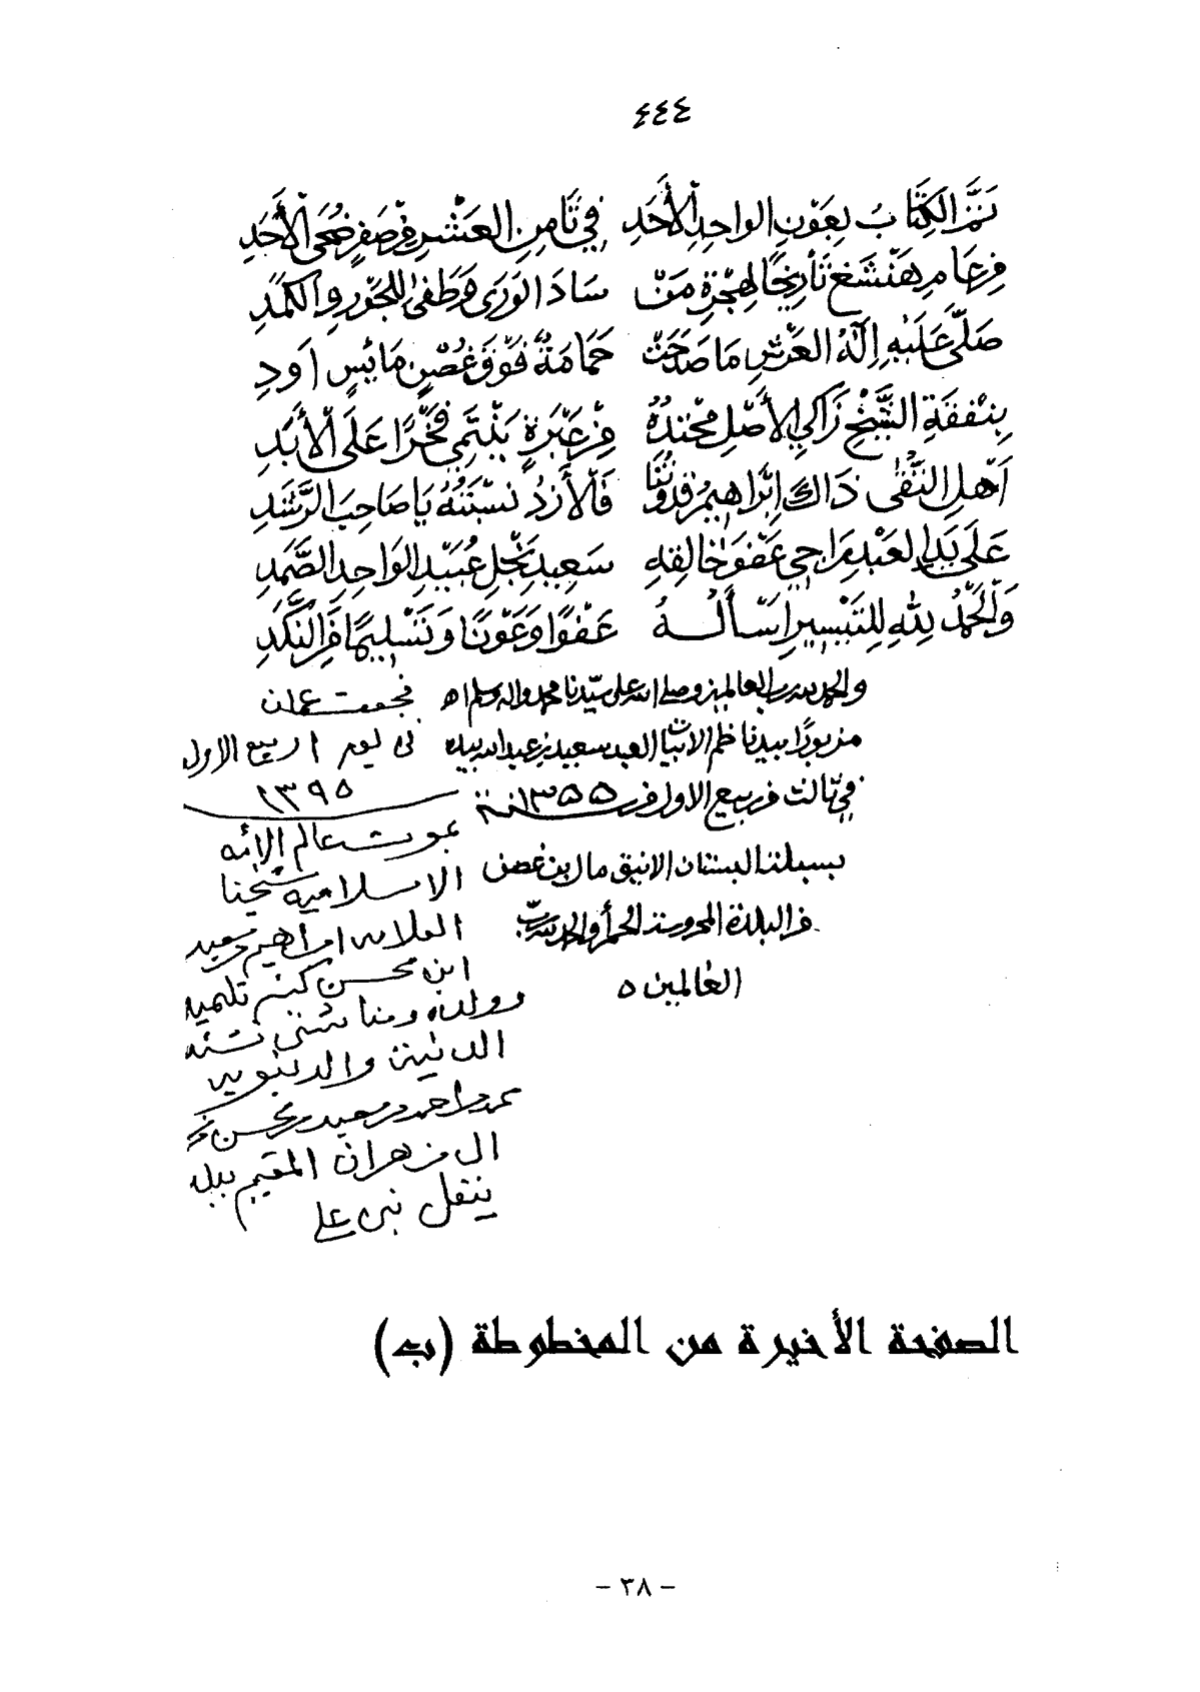 ٤٤٤
تَمَّ الكِتَابُ بِعَوْنِ الواحِدِ الأَحَدِ في ثَامِنِ العَشْرِ مِنْ صَفَرٍ ضُحَى الأَحَدِ
مِنْ عَامِ هَنْشَغ تَأرِيخًا لِهِجْرَةِ مَنْ سَادَ الوَرَى وَطَفَى لِلجَوْرِ والكَمَدِ
صَلَّى عَلَيْهِ إِلَهُ العَرْشِ مَا صَدَحَتْ حَمَامَةٌ فَوْقَ غُصْنٍ مَائِسٍ اَوَدِ
بِنَفَقَةِ الشَّيْخِ زَاكِي الأَصْلِ مَحْتِدُهُ مِنْ عَبْرَةٍ يَنْتَمِي فَخْرًا عَلَى الأَبَدِ
اَهْلِ التُّقَى ذَاكَ إِبْرَاهِيمُ قُدْوَتُنَا فَالأَزْدُ نِسْبَتُهُ يَا صَاحِبَ الرَّشَدِ
عَلَى يَدِ العَبْدِ رَاجِي عَفْوَ خَالِقِهِ سَعِيدِ نَجْلِ عُبَيْدِ الوَاحِدِ الصَّمَدِ
وَالحَمْدُ لِلهِ لِلتَّيْسِيرِ اَسْأَلُهُ عَفْوًا وَعَوْنًا وَتَسْلِيمًا مِنَ النَّكَدِ
والحمد لله رب العالمين وصلى الله على سيدنا محمد واله وسلم اه
مزبورًا بيد ناظم الابيات العبد سعيد بن عبدالله بيده
في ثالث من ربيع الاول من سنة ١٣٥٥
بسبلتنا البستان الانيق مال بن غصن
من البلدة المحروسة الحمرأ والحمد لله رب
العالمين ه
فجعت عمان
في يوم ١ ربيع الاول
١٣٩٥
بموت عالم الائمه
الاسلاميه شيخنا
العلامه ابراهيم بن سعيد
ابن محسن كتبه تلميذه
وولده
الدينية والدنيويه
احمد بن سعيد بن محسن
ال زهران المقيم ببلد
نبي علي
الصفحة الأخيرة من المخطوطة (ب)
- ٣٨ -